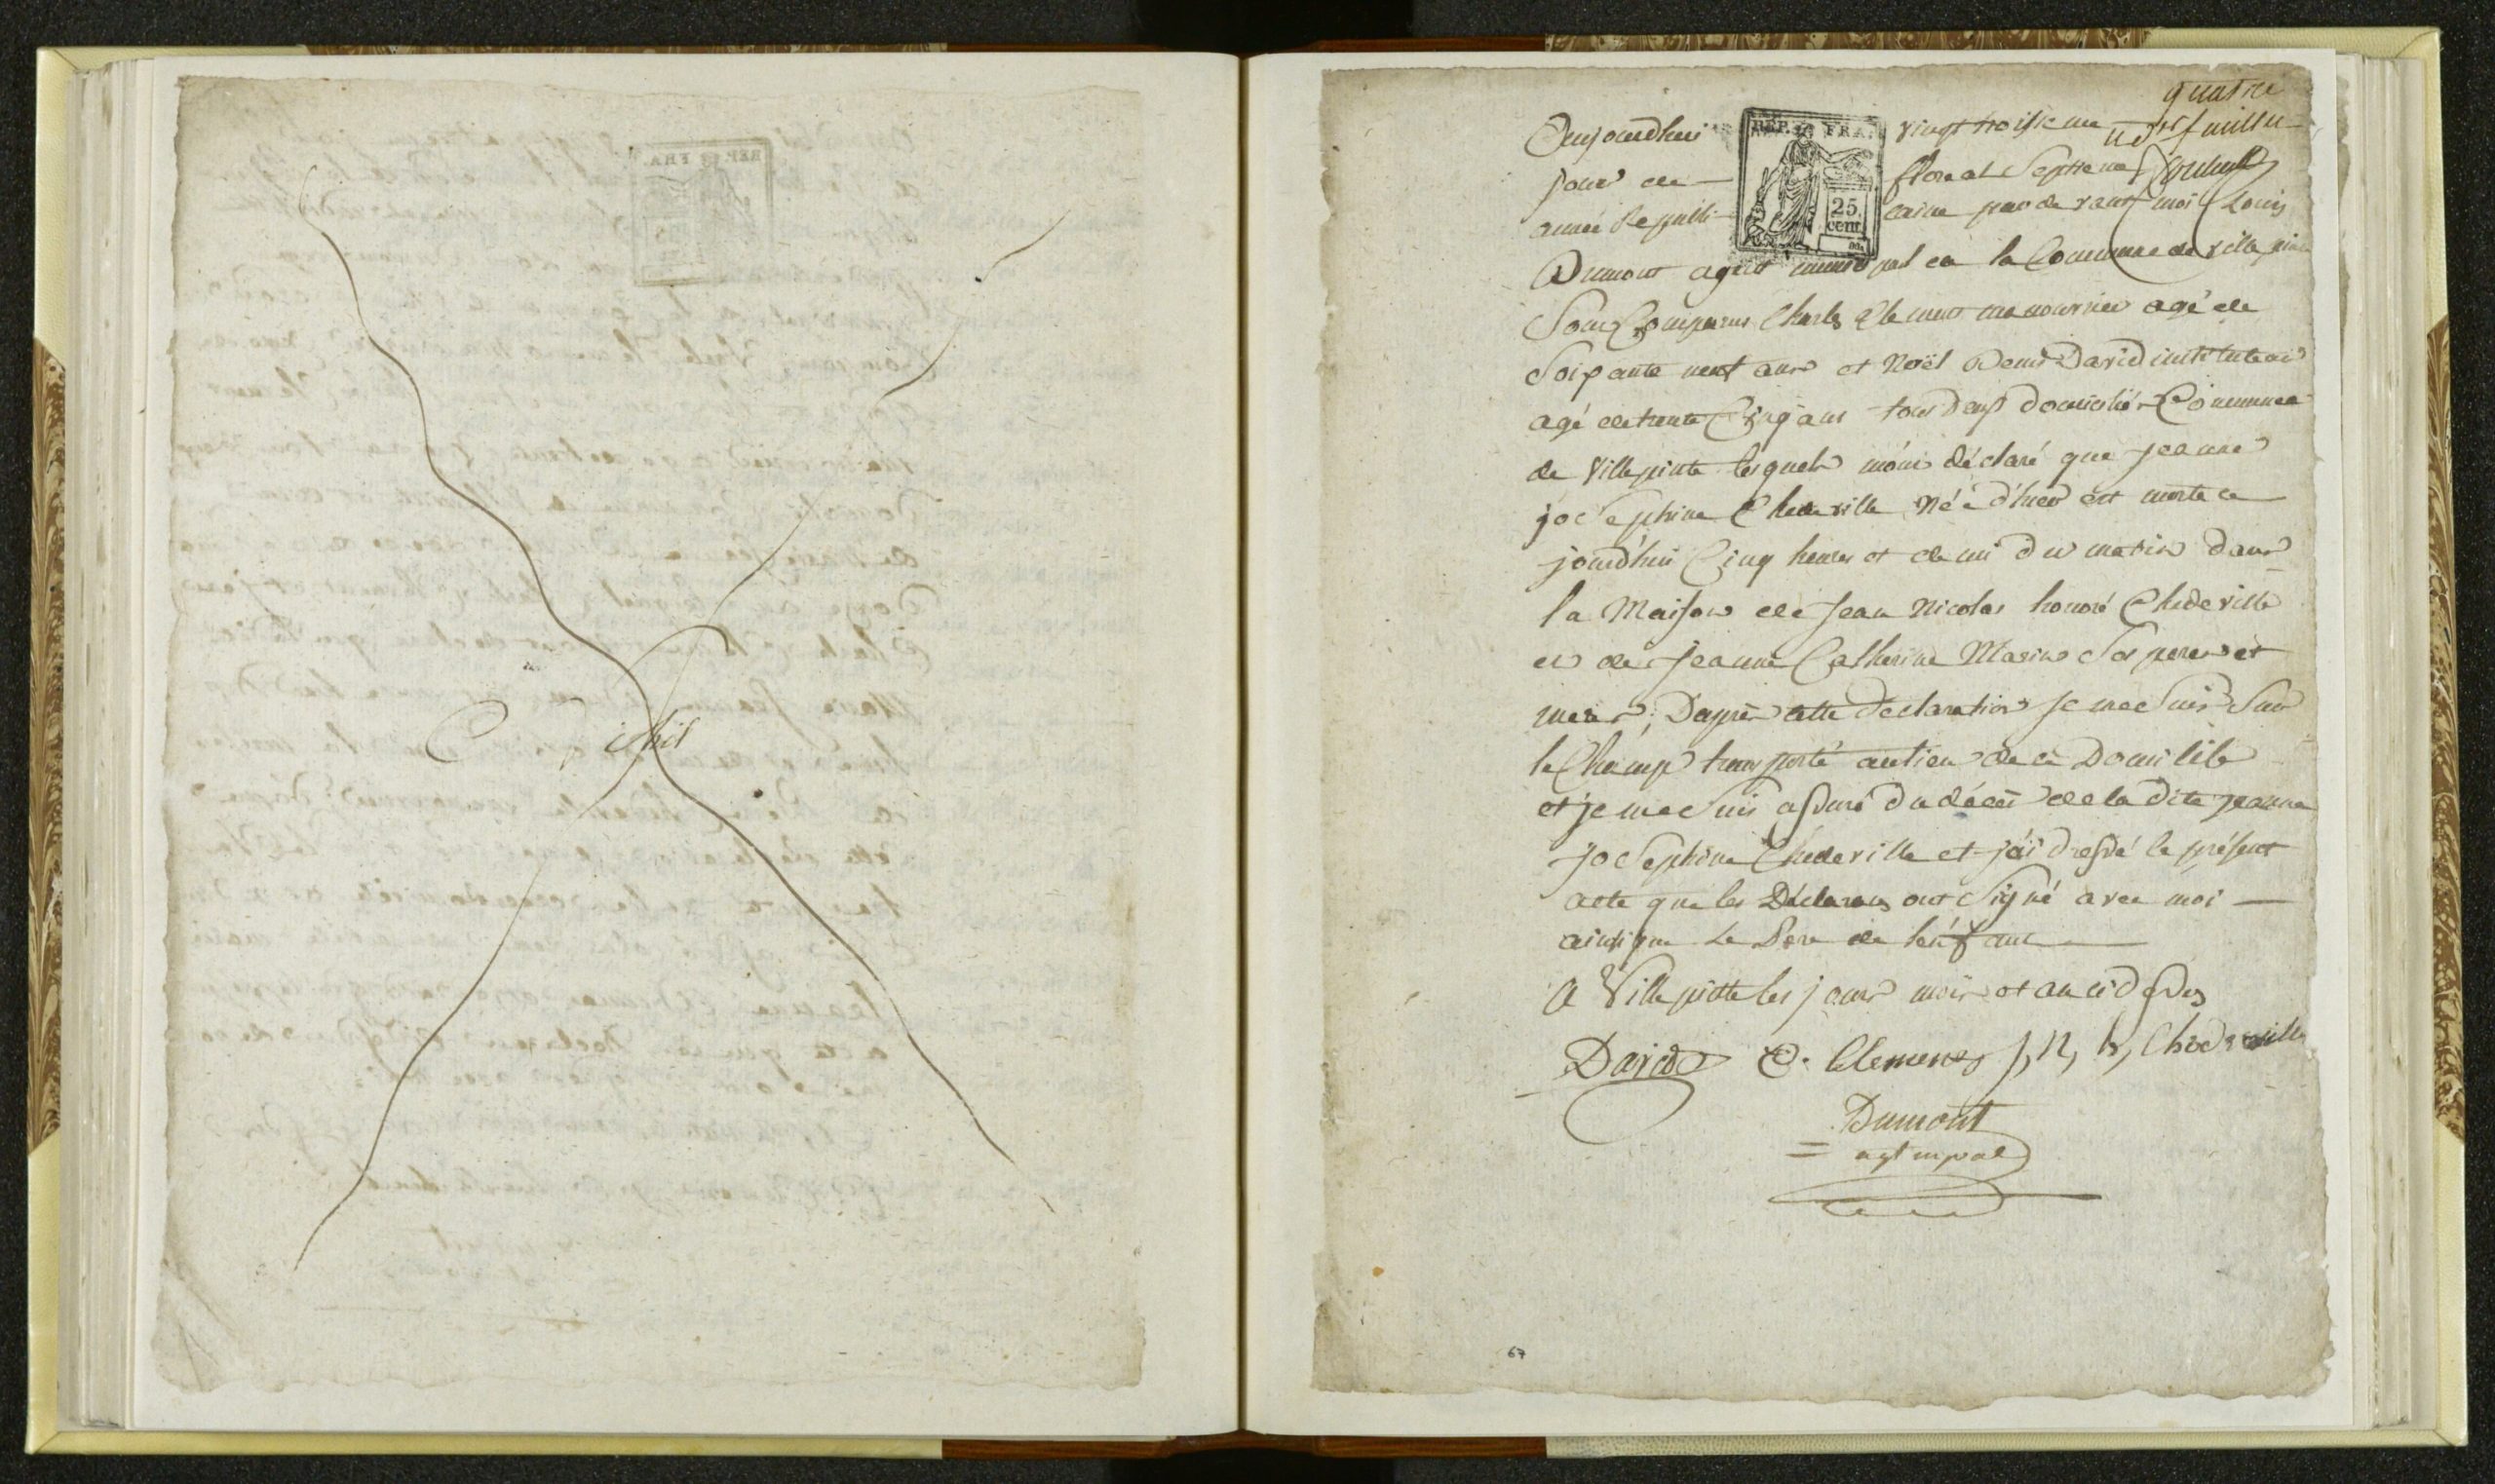 quatre
f feuillet
Aujourdhui vingt troisieme
REP. FRA.
25.
cent.
jour de floreal Septieme
année Republicaine par de vant moi Louis
Dumont agent municipal en la Commune de villepinte
Sont Comparus Charles Clement manouvrier agé de
Soixante neuf ans et Noël Denis David instituteur
agé de trente Cinq ans tous deux domiciliés Commune
de Villepinte lesquels m'ont déclaré que jeanne
joséphine Chedeville Née d'hier est morte ce
jourd'hui Cinq heures et demi du matin dans
la Maison de Jean Nicolas honoré Chedeville
et de jeanne Catherine Marin Ses peres et
meres, Daprès cette declaration je me Suis Sur
le Champ transporté au lieu de ce Domicile
et je me Suis assuré du décès de la dite jeanne
joséphine Chedeville et j'ai dressé le présent
acte que les Déclarans ont Signé avec moi
ainsi que Le Pere de lenfant
A Villepinte les jour mois et an ci dessus
David C. Clement j, N, h, Chedeville
Dumont
agt mpal
67